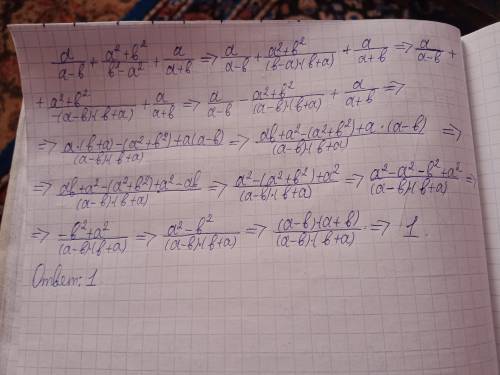 a/(a-b) + (a²+b²)/(b²-a²) + a/(a+b) => a/(a-b) + (a²+b²)/((b-a)·(b+a)) + a/(a+b) => a/(a-b) +
+ (a²+b²)/(-(a-b)·(b+a)) + a/(a+b) => a/(a-b) - (a²+b²)/((a-b)·(b+a)) + a/(a+b) =>
=> (a·(b+a)-(a²+b²)+a(a-b))/((a-b)·(b+a)) => (ab+a²-(a²+b²)+a·(a-b))/((a-b)·(b+a)) =>
=> (ab+a²-(a²+b²)+a²-ab)/((a-b)·(b+a)) => (a²-(a²+b²)+a²)/((a-b)·(b+a)) => (a²-a²-b²+a²)/((a-b)·(b+a)) =>
=> (-b²+a²)/((a-b)·(b+a)) => (a²-b²)/((a-b)·(b+a)) => ((a-b)·(a+b))/((a-b)·(b+a)) => 1.
Ответ: 1